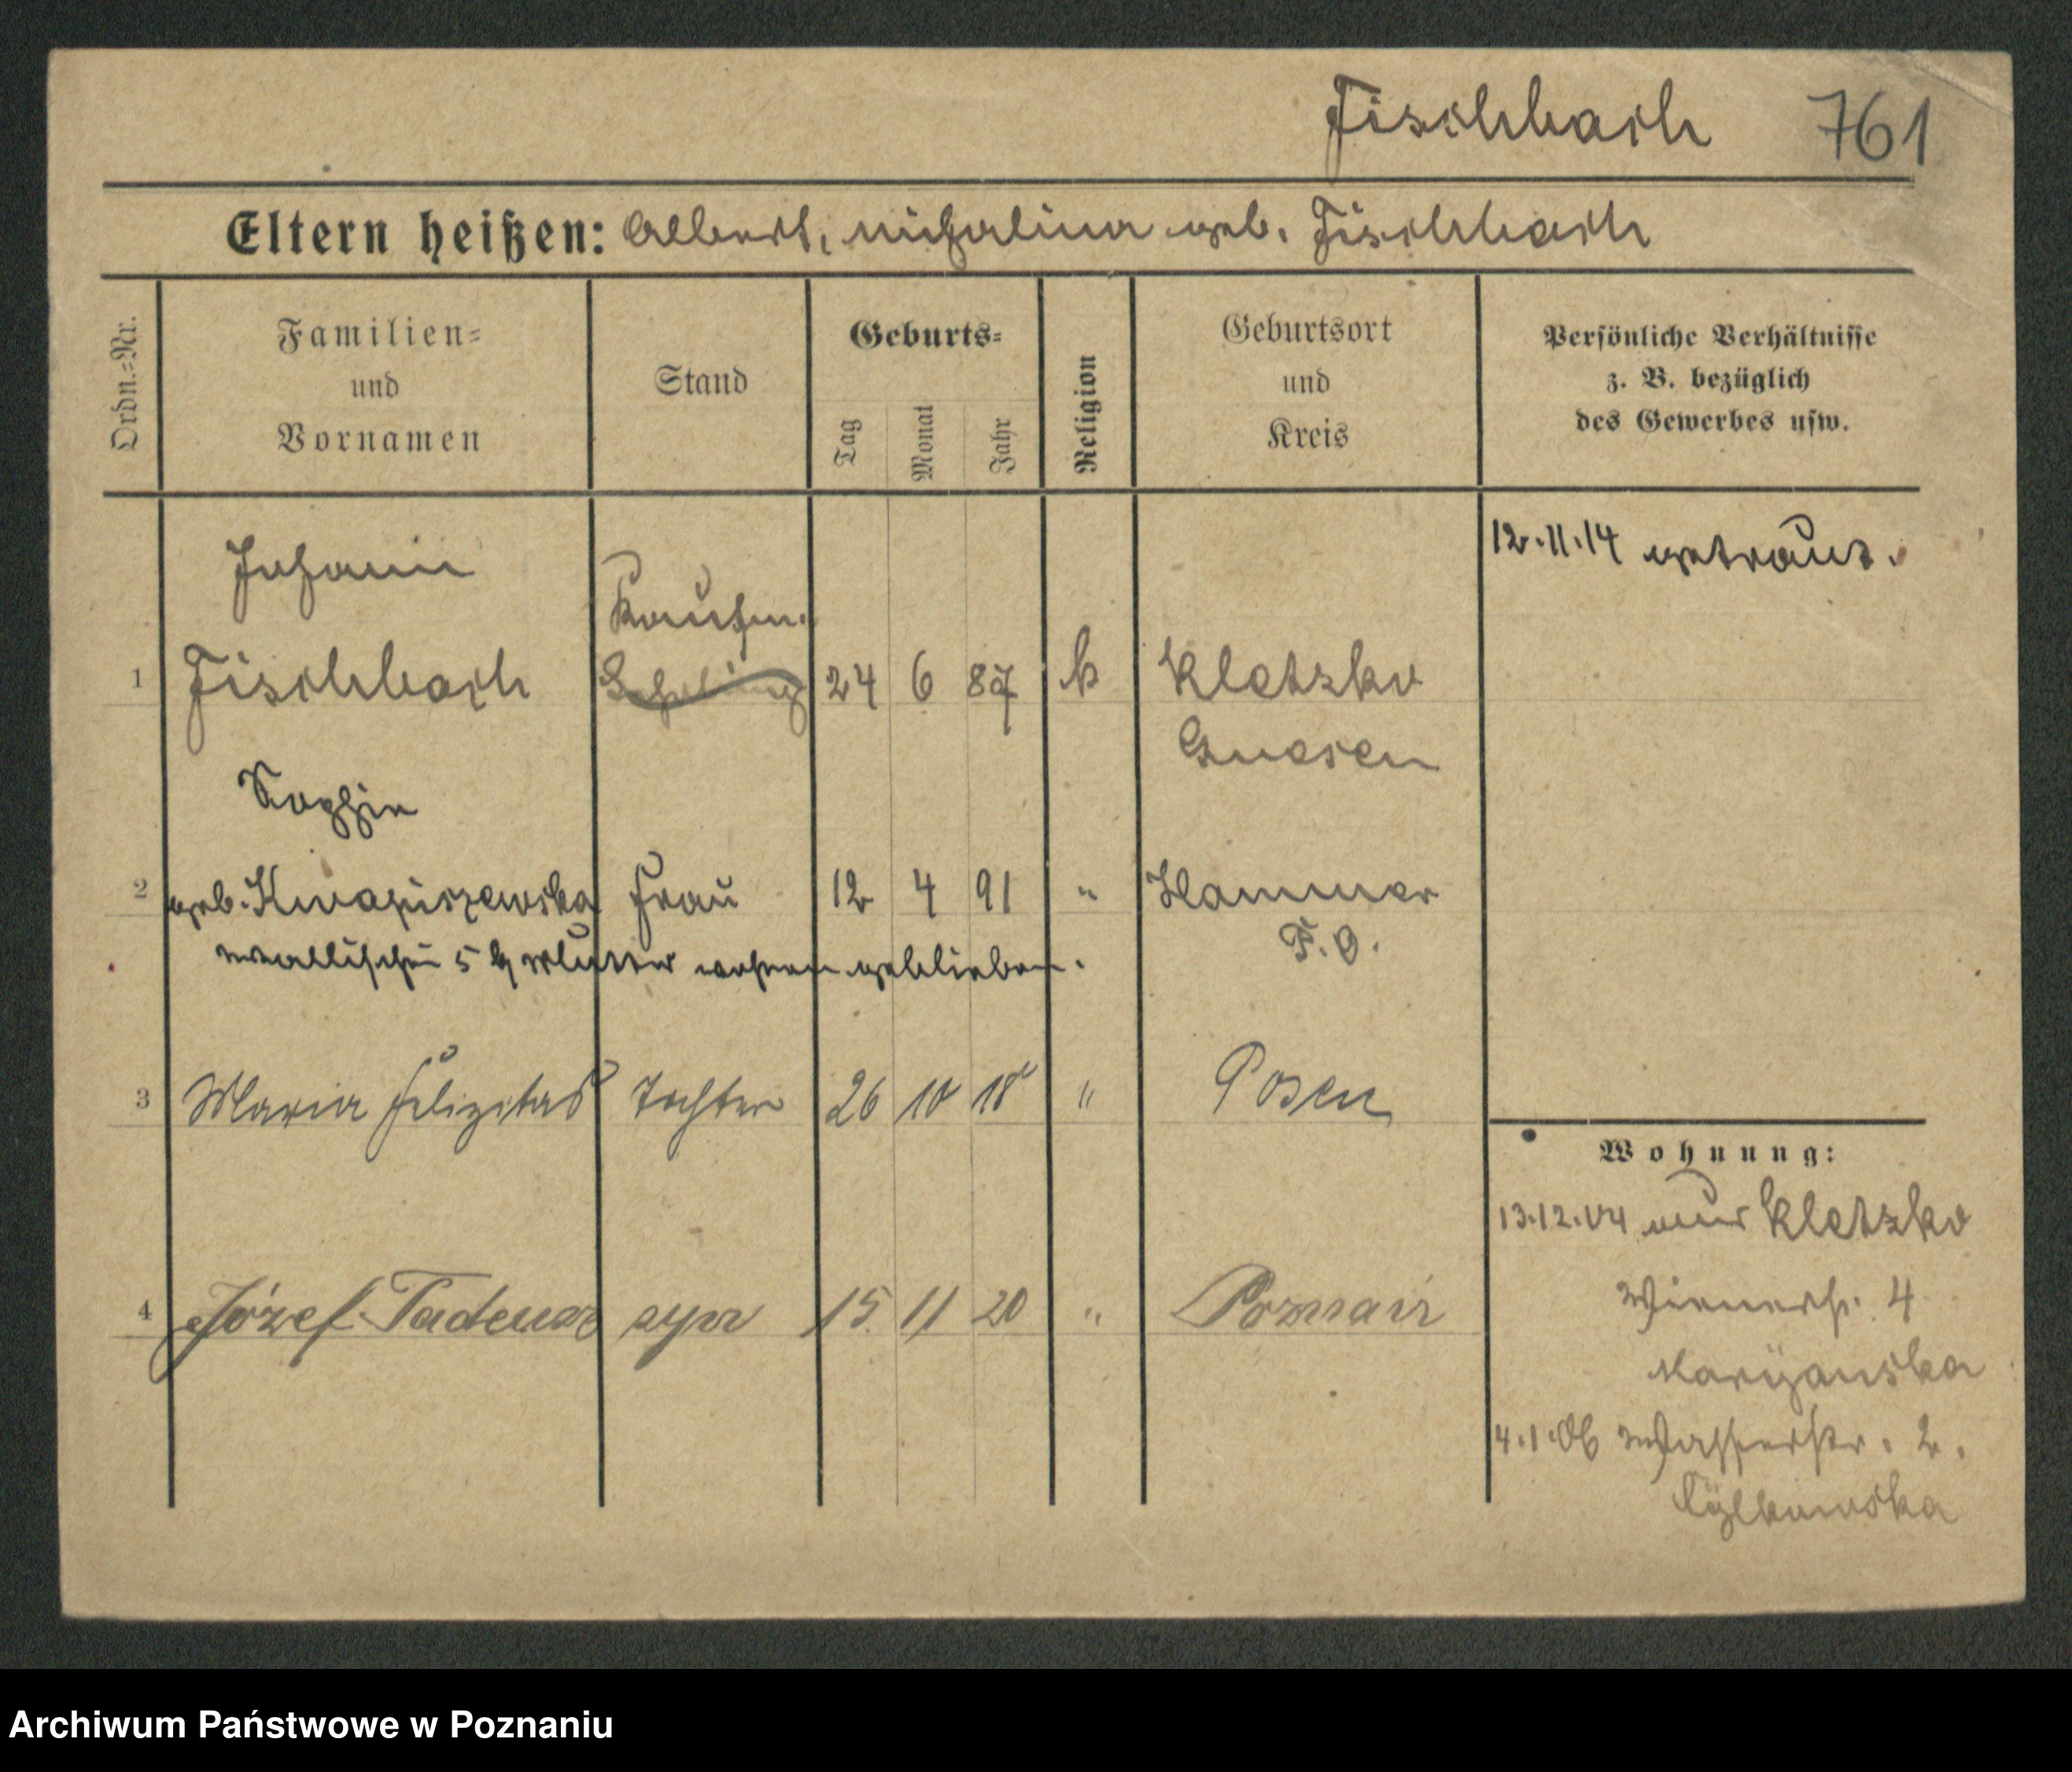 Fischbach 761
Eltern heißen: Albert, Michalina geb. Fischbach
Ordn.=Nr.
Familien=
und
Vornamen
Stand
Geburts=
Tag
Monat
Jahr
Religion
Geburtsort
und
Kreis
Persönliche Verhältnisse
z. B. bezüglich
des Gewerbes usw.
12.11.14 getraut.
Johann
Kaufm.
1 Fischbach 24 6 87 k Kletzko
Gnesen
Sophie
2 geb. Kwapiszewska Frau 12 4 91 " Hammer
P. O.
Wallischei 5 b/ Mutter wohnen geblieben.
3 Maria Felizitas Tochter 26 10 18 " Posen
Wohnung:
13.12.04 aus Kletzko
4 Józef Tadeusz syn 15. 11 20 " Poznań
Wienerstr. 4
Maryanska
4.1.06 Wasserstr. 2.